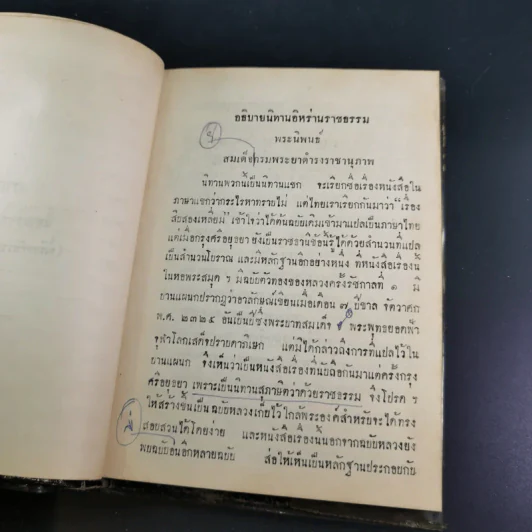 อธิบายนิทานอิหร่านราชธรรม
พระนิพนธ์
สมเด็จกรมพระยาดำรงราชานุภาพ
นิทานพวกนี้เป็นนิทานแขก จะเรียกชื่อเรื่องหนังสือใน
ภาษาแขกว่ากระไรหาทราบไม่ แต่ไทยเราเรียกกันมาว่า "เรื่อง
สิบสองเหลี่ยม" เข้าใจว่าได้ต้นฉบับเดิมเข้ามาแปลเป็นภาษาไทย
แต่เมื่อกรุงศรีอยุธยา ยังเป็นราชธานีข้อนี้รู้ได้ด้วยสำนวนที่แปล
เป็นสำนวนโบราณ และมีหลักฐานอีกอย่างหนึ่ง ที่หนังสือเรื่องน
ในหอพระสมุด ฯ มีฉบับตัวทองของหลวงครั้งรัชกาลที่ ๑ มี
บานแผนกปรากฏว่าอาลักษณ์เขียนเมื่อเดือน ๗ ปีขาล จัตวาศก
พ.ศ. ๒๓๒๕ อันเป็นปีซึ่งพระบาทสมเด็จ ฯ พระพุทธยอดฟ้า
จุฬาโลกเสด็จปราบดาภิเษก แต่มิได้กล่าวถึงการที่แปลไว้ใน
บานแผนก จึงเห็นว่าเป็นหนังสือเรื่องที่นับถือกันมาแต่ครั้งกรุง
ศรีอยุธยา เพราะเป็นนิทานสุภาษิตว่าด้วยราชธรรม จึงโปรด ฯ
ให้สร้างขึ้นเป็นฉบับหลวงเก็บไว้ใกล้พระองค์สำหรับจะได้ทรง
สอบสวนได้โดยง่าย และหนังสือเรื่องนี้นอกจากฉบับหลวงยัง
พบฉบับอื่นอีกหลายฉบับ ส่อให้เห็นเป็นหลักฐานประกอบกับ